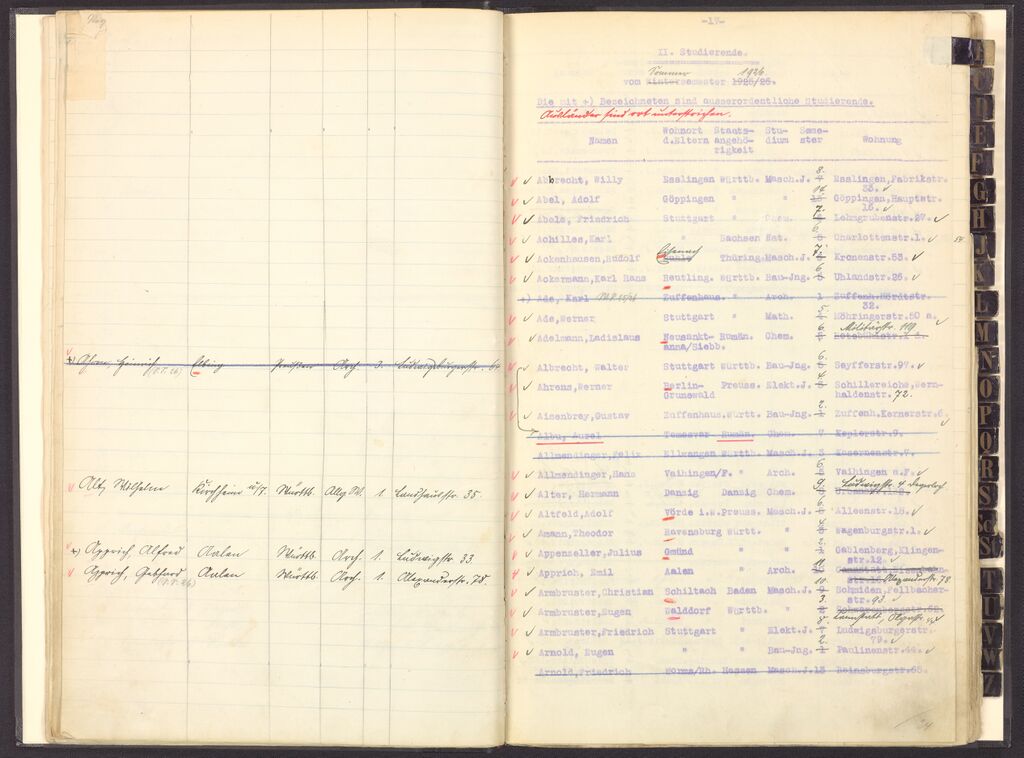 -17-
II. Studierende.
Sommer 1926
vom Wintersemester 1925/26.
Die mit +) Bezeichneten sind ausserordentliche Studierende.
Ausländer sind rot unterstrichen.
Namen Wohnort d.Eltern Staats-angehö-rigkeit Stu-dium Seme-ster Wohnung
Abbrecht, Willy Esslingen Württb. Masch.J. 8. Esslingen,Fabrikstr. 33.
Abel, Adolf Göppingen " " Göppingen,Hauptstr. 15.
Abele, Friedrich Stuttgart " Chem. 7. Lehmgrubenstr.27.
Achilles,Karl " Sachsen Nat. 6. Charlottenstr.1.
Ackenhausen,Rudolf Thüring. Masch.J. 7. Kronenstr.53.
Ackermann,Karl Hans Reutling. Württb. Bau-Jng. 6. Uhlandstr.26.
+) Ade, Karl Zuffenhaus. " Arch. 1 Zuffenh.Hördtstr. 32.
Ade,Werner Stuttgart " Math. 5. Möhringerstr.50 a.
Adelmann,Ladislaus Neusankt-anna/Siebb. Rumän. Chem. 6. Militärstr. 119
Albrecht, Walter Stuttgart Württb. Bau-Jng. 6. Seyfferstr.97.
Ahrens,Werner Berlin-Grunewald Preuss. Elekt.J. 6. Schillereiche,Wern-haldenstr. 72.
Aisenbrey,Gustav Zuffenhaus.Württ. Bau-Jng. 2. Zuffenh.Kernerstr.6.
Albu, Aurel Temesvar Rumän. Chem. 7 Keplerstr.9.
Allmendinger,Felix Ellwangen Württb. Masch.J. 3 Kasernenstr.7.
Allmendinger,Hans Vaihingen/F. " Arch. 6. Vaihingen a.F.
Alter, Hermann Danzig Danzig Chem. 9. Ludwigstr. 4 Degerloch
Altfeld,Adolf Vörde i.W.Preuss. Masch.J. 6. Alleenstr.15.
Amann,Theodor Ravensburg Württ. " 4. Wagenburgstr.1.
Appenzeller,Julius Gmünd " " 2. Gablenberg,Klingen-str.12.
Apprich, Emil Aalen " Arch. 11. Alexanderstr. 78
Armbruster,Christian Schiltach Baden Masch.J. 10. Schmiden,Fellbacher-str. 93.
Armbruster,Eugen Walddorf Württb. " 3. Cannstatt, Olgastr.
Armbruster,Friedrich Stuttgart " Elekt.J. 8. Ludwigsburgerstr. 79.
Arnold, Eugen " " Bau-Jng. 2. Paulinenstr.44.
Arnold,Friedrich Worms/Rh. Hessen Masch.J. 13 Reinsburgstr.65.
Elbing Preußen Arch. 3. Ludwigsburgerstr. 64
Alt, Wilhelm Kirchheim u/T. Württb. Allg W. 1 Landhausstr. 35.
+) Apprich, Alfred Aalen Württb. Arch. 1 Ludwigstr. 33.
Apprich, Gebhard Aalen Württb. Arch. 1. Alexanderstr. 78.
D
E
F
G
H
J
K
L
M
N
O
P
Q
R
S
Sch
St
T
U
V
W
Z